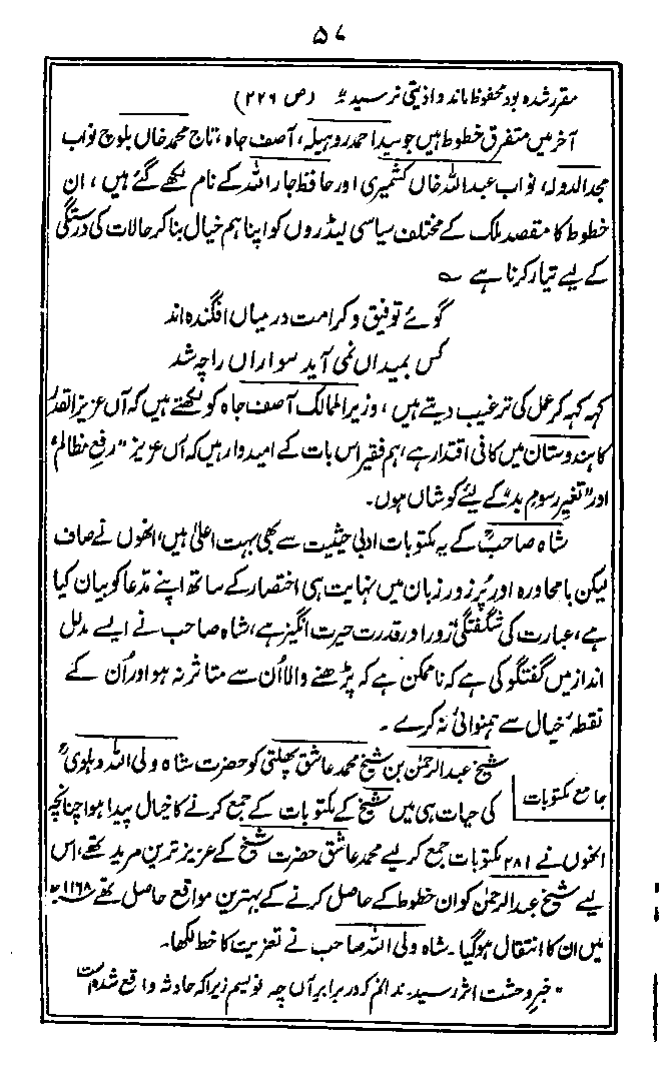 ۵۷
مقرر شدہ بود محفوظ ماند و اذیتی نرسید" (ص ۲۲۶)
آخر میں متفرق خطوط ہیں جو سید احمد روہیلہ، آصف جاہ، تاج محمد خاں بلوچ نواب
مجد الدولہ، نواب عبد اللہ خاں کشمیری اور حافظ جار اللہ کے نام لکھے گئے ہیں، ان
خطوط کا مقصد ملک کے مختلف سیاسی لیڈروں کو اپنا ہم خیال بنا کر حالات کی درستگی
کے لیے تیار کرنا ہے ؎
گوئے توفیق و کرامت درمیاں افگندہ اند
کس بمیداں نمی آید سواراں را چہ شد
کہہ کہہ کر عمل کی ترغیب دیتے ہیں، وزیر الممالک آصف جاہ کو لکھتے ہیں کہ آں عزیز القدر
کا ہندوستان میں کافی اقتدار ہے، ہم فقیر اس بات کے امیدوار ہیں کہ آں عزیز "رفع مظالم"
اور "تغیر رسوم بد" کے لیئے کوشاں ہوں۔
شاہ صاحبؒ کے یہ مکتوبات ادبی حیثیت سے بھی بہت اعلیٰ ہیں، انھوں نے صاف
لیکن بامحاورہ اور پُر زور زبان میں نہایت ہی اختصار کے ساتھ اپنے مدّعا کو بیان کیا
ہے، عبارت کی شگفتگی زور اور قدرت حیرت انگیز ہے، شاہ صاحب نے ایسے مدلل
انداز میں گفتگو کی ہے کہ ناممکن ہے کہ پڑھنے والا اُن سے متاثر نہ ہو اور اُن کے
نقطۂ خیال سے ہمنوائی نہ کرے۔
جامع مکتوبات
شیخ عبد الرحمٰن بن شیخ محمد عاشق پھلتی کو حضرت شاہ ولی اللہ دہلویؒ
کی حیات ہی میں شیخ کے مکتوبات کے جمع کرنے کا خیال پیدا ہوا چنانچہ
انھوں نے ۲۸۱ مکتوبات جمع کر لیے محمد عاشق حضرت شیخ کے عزیز ترین مرید تھے، اس
لیے شیخ عبد الرحمٰن کو ان خطوط کے حاصل کرنے کے بہترین مواقع حاصل تھے ۱۱۶۸ھ
میں ان کا انتقال ہو گیا۔ شاہ ولی اللہ صاحب نے تعزیت کا خط لکھا۔
"خبر وحشت اثر رسید۔ ندانم کہ در برابر آں چہ نویسم زیرا کہ حادثہ واقع شدہ است